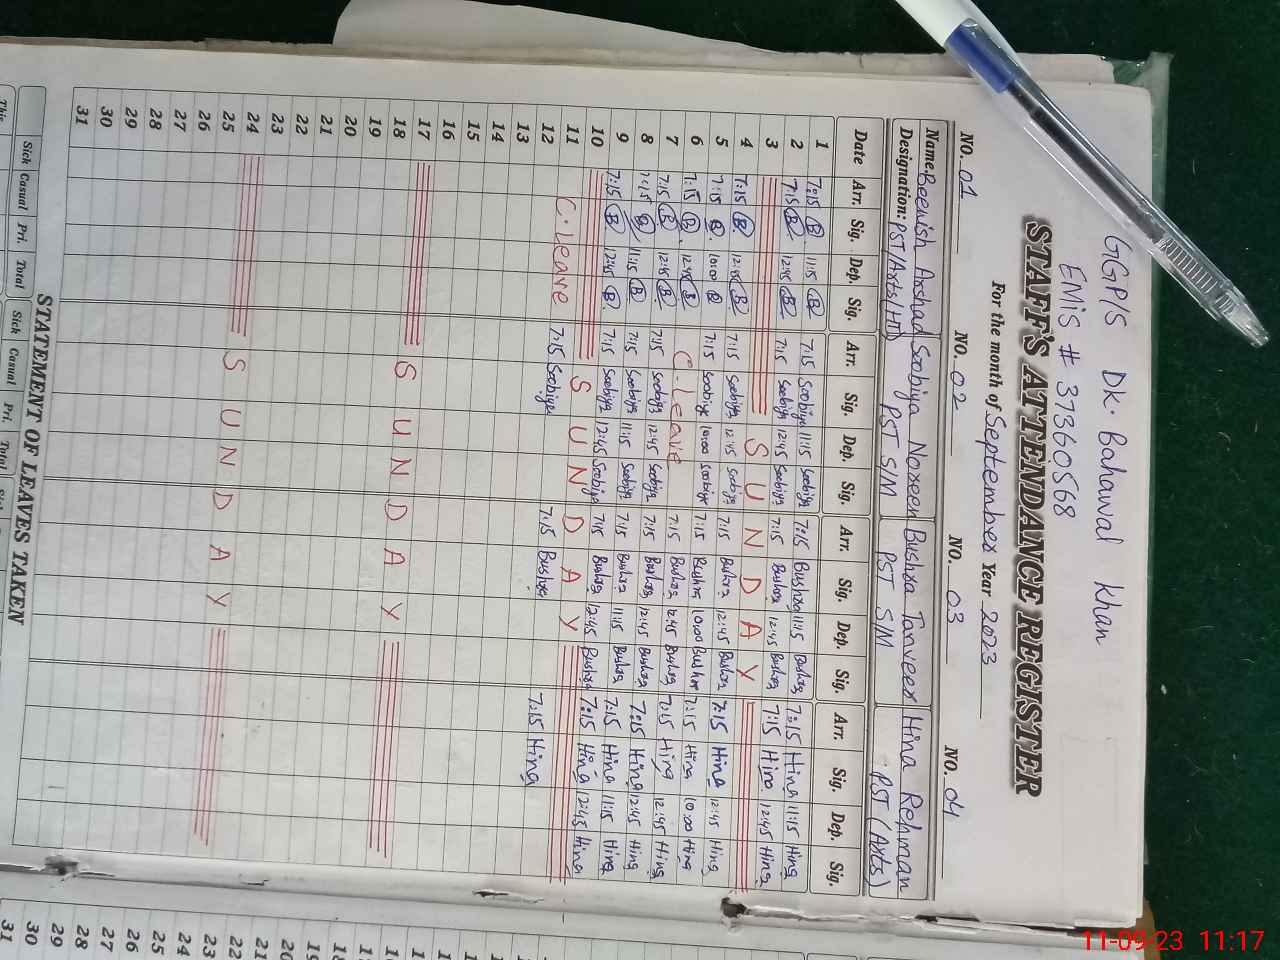 GGP/S DK. Bahawal Khan
EMIS # 37360568
STAFF'S ATTENDANCE REGISTER
For the month of September Year 2023
NO. 01 NO. 02 NO. 03 NO. 04
Name. Beenish Arshad Soobiya Noreen Bushra Tanveer Hina Rehman
Designation: PST/Arts/HT PST S/M PST S/M PST (Arts)
Date Arr. Sig. Dep. Sig. Arr. Sig. Dep. Sig. Arr. Sig. Dep. Sig. Arr. Sig. Dep. Sig.
1 7:15 B 11:15 B 7:15 Soobiya 11:15 Soobiya 7:15 Bushra 11:15 Bushra 7:15 Hina 11:15 Hina
2 7:15 B 12:45 B 7:15 Soobiya 12:45 Soobiya 7:15 Bushra 12:45 Bushra 7:15 Hina 12:45 Hina
3 SUNDAY
4 7:15 B 12:45 B 7:15 Soobiya 12:45 Soobiya 7:15 Bushra 12:45 Bushra 7:15 Hina 12:45 Hina
5 7:15 B 10:00 B 7:15 Soobiya 10:00 Soobiya 7:15 Bushra 10:00 Bushra 7:15 Hina 10:00 Hina
6 7:15 B 12:45 B C.Leave 7:15 Bushra 12:45 Bushra 7:15 Hina 12:45 Hina
7 7:15 B 12:45 B 7:15 Soobiya 12:45 Soobiya 7:15 Bushra 12:45 Bushra 7:15 Hina 12:45 Hina
8 7:15 B 11:15 B 7:15 Soobiya 11:15 Soobiya 7:15 Bushra 11:15 Bushra 7:15 Hina 11:15 Hina
9 7:15 B 12:45 B 7:15 Soobiya 12:45 Soobiya 7:15 Bushra 12:45 Bushra 7:15 Hina 12:45 Hina
10 SUNDAY
11 C.Leave 7:15 Soobiya 7:15 Bushra 7:15 Hina
12
13
14
15
16
17 SUNDAY
18
19
20
21
22
23
24 SUNDAY
25
26
27
28
29
30
31
STATEMENT OF LEAVES TAKEN
Sick Casual Pri. Total Sick Casual Pri. Total
This
19
20
21
22
23
24
25
26
27
28
29
30
31
11-09-23 11:17